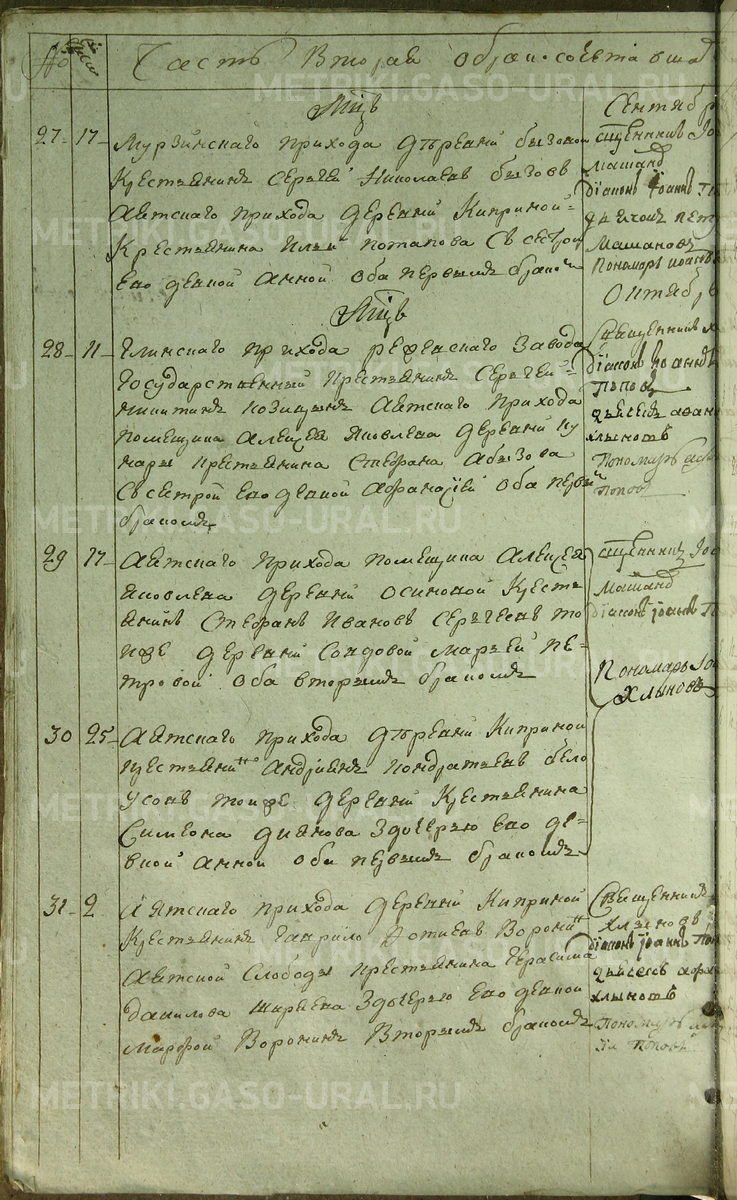 № Число Часть Вторая о бракосочетавша
Мцъ Сентябр
27 17 Мурзинскаго прихода деревни Бызовой
Крестьянинъ Сергей Николаевъ Бызовъ
Аятскаго прихода деревни Киприной
Крестьянина Ильи Потапова с сестрою
ево девкой Анной оба первымъ бракомъ
священникъ
Машано
діаконъ Іоаннъ
дьячокъ Петр
Машановъ
Пономарь Иоаннъ
Мцъ Октябр
28 11 Глинскаго прихода Режевскаго завода
Государственный крестьянинъ Сергей
Никитинъ Аятскаго прихода
помещика Алексея Яковлева деревни Ку
нары крестьянина Стефана Абызова
съ сестрой ево девкой оба первы
бракомъ
Священникъ
діаконъ Иоаннъ
Поповъ
Хлыновъ
Пономарь
Поповъ
29 17 Аятскаго прихода помещика Алексея
Яковлева деревни Осиновой Кресть
янинъ Стефанъ Ивановъ Сергеевъ то
йже деревни Марьей Пе-
тровой оба вторымъ бракомъ
священникъ
Машано
діаконъ Іоаннъ
Пономарь
Хлыновъ
30 25 Аятскаго прихода деревни Киприной
крестьянинъ Андріянъ Кондратьевъ Бело
усовъ тойже деревни Крестьянина
Симеона Диянова з дочерью ево де-
вкой Анной оба первымъ бракомъ
31 2 Аятскаго прихода деревни Киприной
Крестьянинъ Гаврило Фотиевъ Воронин
Аятской Слободы крестьянина Герасима
Данилова з дочерью ево девкой
Марфой Воронинъ вторымъ бракомъ
Священникъ
Хлыновъ
діаконъ Іоаннъ
Хлыновъ
Пономарь
Поповъ
METRIKI.GASO-URAL.RU